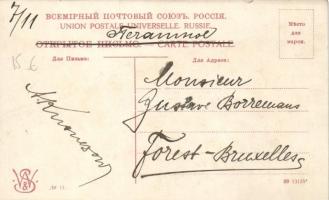 7/11
ВСЕМІРНЫЙ ПОЧТОВЫЙ СОЮЗЪ. РОССІЯ.
UNION POSTALE UNIVERSELLE. RUSSIE.
Печатное
ОТКРЫТОЕ ПИСЬМО. CARTE POSTALE.
Мѣсто
для
марки.
15 €
Для Письма:
Для Адреса:
Monsieur
Gustave Borremans
Forest-Bruxelles